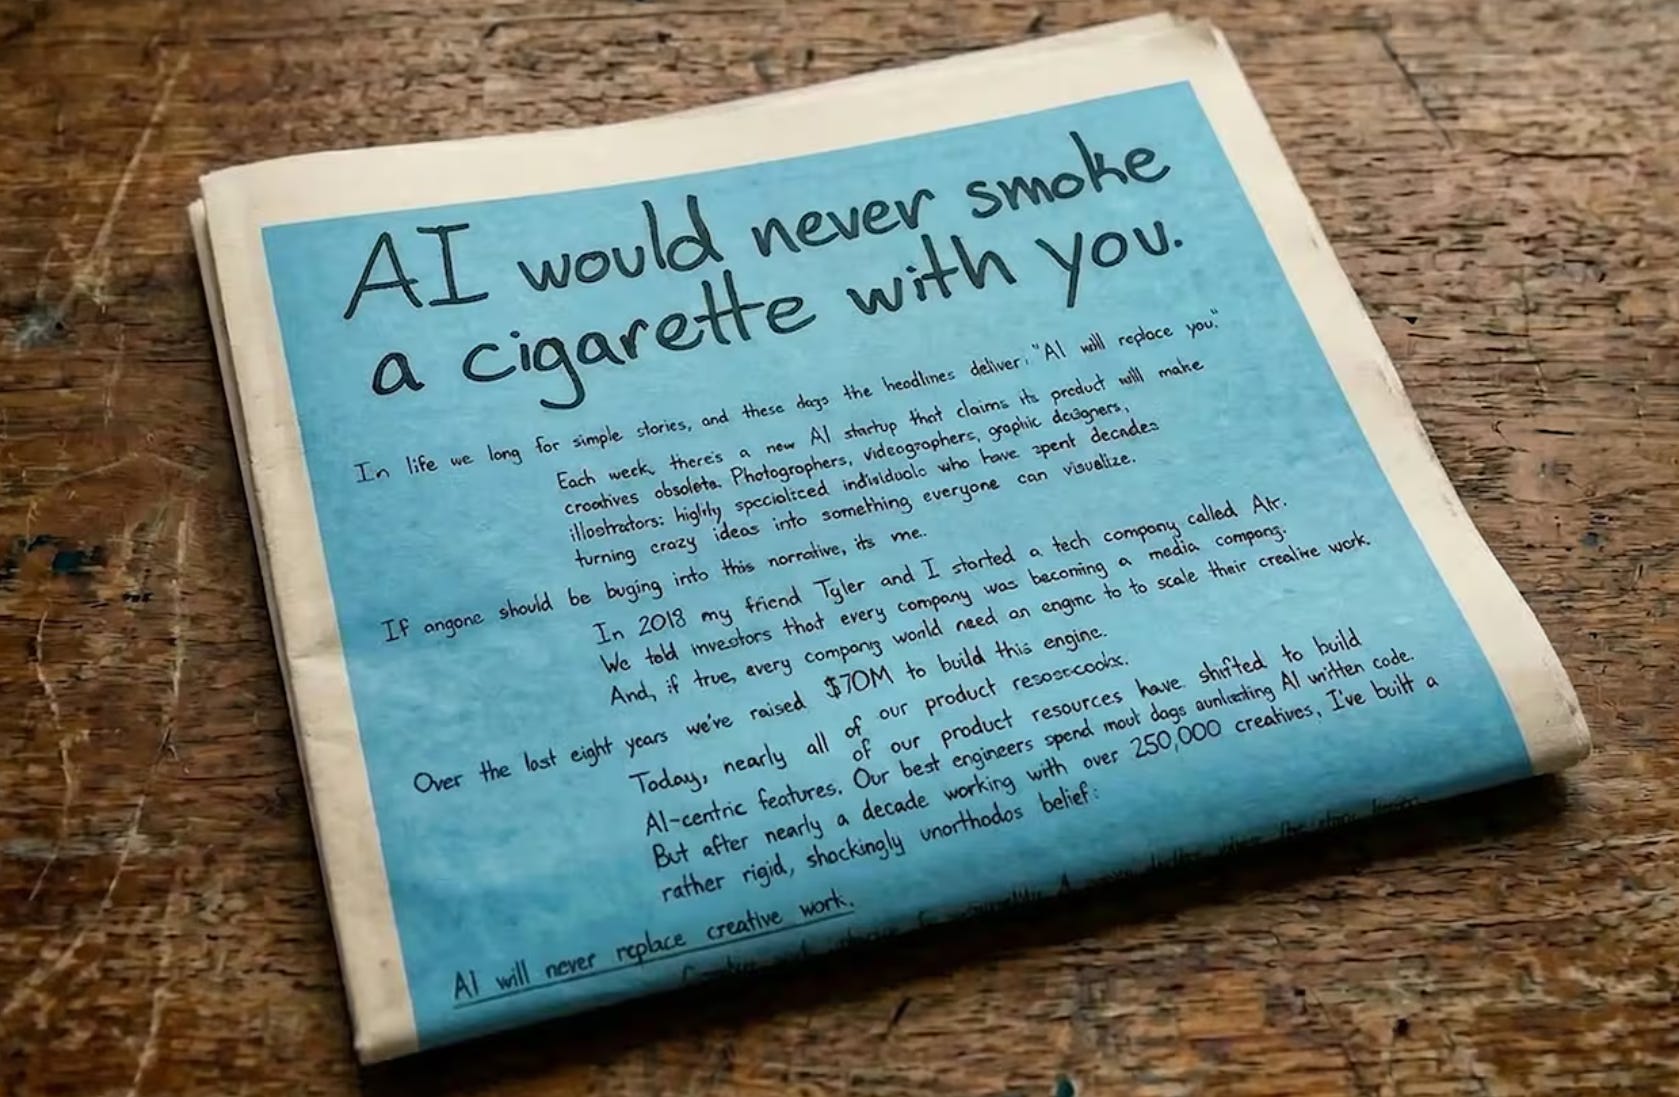 AI would never smoke
a cigarette with you.
In life we long for simple stories, and these days the headlines deliver: "AI will replace you."
Each week, there's a new AI startup that claims its product will make
creatives obsolete. Photographers, videographers, graphic designers,
illostrators: highly specialiced individuals who have spent decades
turning crazy ideas into something everyone can visualize.
If angone should be buging into this narrative, its me.
In 2018 my friend Tyler and I started a tech company called Air.
We told investors that every company was becoming a media company.
And, if true, every company would need an engine to to scale their creative work.
Over the last eight years we've raised $70M to build this engine.
Today, nearly all of our product
of our product resources have shifted to build
AI-centric features. Our best engineers spend days AI written code.
But after nearly a decade working with over 250,000 creatives, I've built a
rather rigid, shockingly unorthodos belief:
AI will never replace creative work.